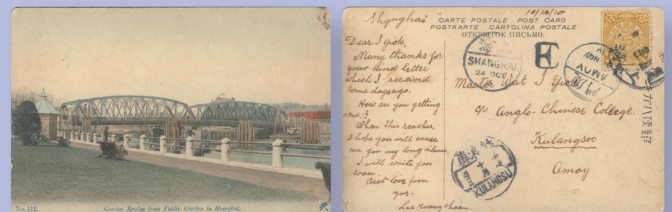 No. 112.
Garden Bridge from Public Garden in Shanghai.
Shanghai
10/10/10
CARTE POSTALE POST CARD
POSTKARTE CARTOLINA POSTALE
ОТКРЫТОЕ ПИСЬМО.
Dear I Yick,
Many thanks for
your kind letter
which I received
some days ago.
How are you getting
on?
When this reaches
I hope you will excuse
me for my long silence
I will write you
soon.
Best love from
yrs.
SHANGHAI
24 OCT
AMOY
Master Wat I Yick
c/o Anglo-Chinese College.
Kulangsoo
Amoy
KULANGSU